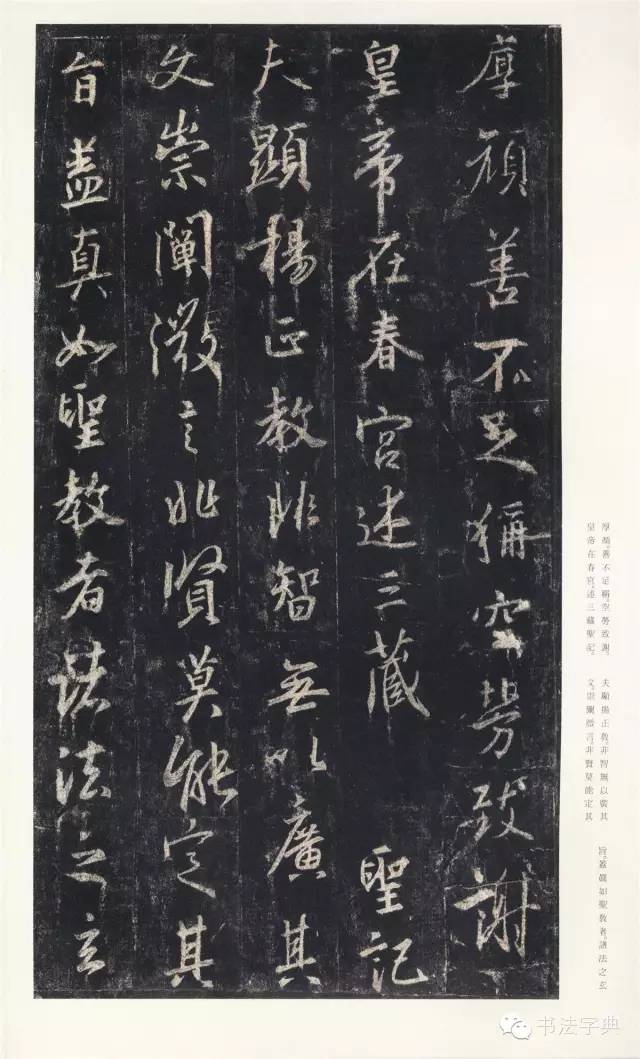 厚顏善不足稱空勞致謝
皇帝在春宮述三藏 聖記
夫顯揚正教非智無以廣其
文崇闡微言非賢莫能定其
旨蓋真如聖教者諸法之玄
厚顏。善不足稱。空勞致謝。
皇帝在春宮。述三藏聖記。
夫顯揚正教。非智無以廣其
文。崇闡微言。非賢莫能定其
旨。蓋真如聖教者。諸法之玄
书法字典